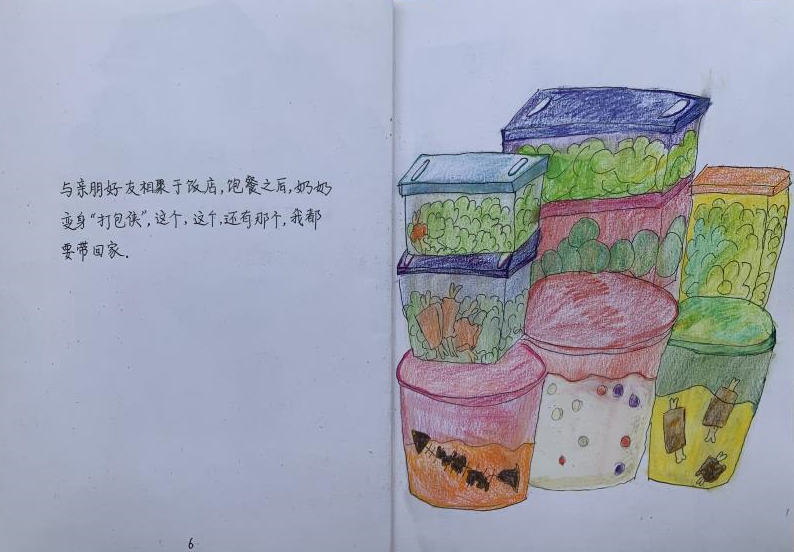 与亲朋好友相聚于饭店,饱餐之后,奶奶
变身“打包侠”,这个,这个,还有那个,我都
要带回家.
6